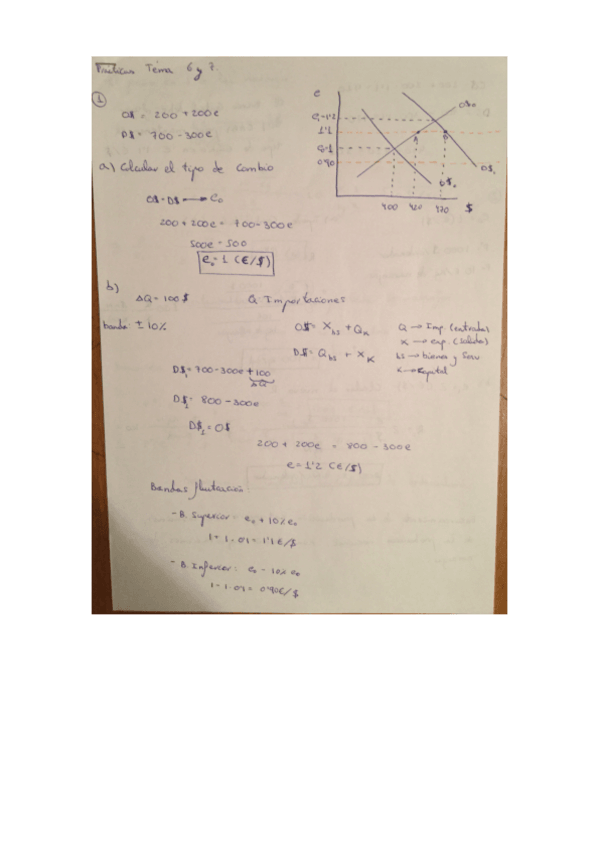 Practicas Tema 6 y 7.
1
O$ = 200 + 200e
D$ = 700 - 300e
a) Calcular el tipo de cambio
O$ = D$ → e₀
200 + 200e = 700 - 300e
500e = 500
e₀ = 1 (€/$)
e
e₁ = 1'2
1'1
e₀ = 1
0'90
O$₀
A
B
D$₁
D$₀
400
420
470
$
b)
ΔQ = 100$
Q Importaciones
banda ± 10%
O$ = X_bs + Q_K
D$ = Q_bs + X_K
Q → Imp. (entradas)
X → exp. (salidas)
bs → bienes y Serv
K → Kapital
D$₁ = 700 - 300e + 100
ΔQ
D$₂ = 800 - 300e
D$₂ = O$
200 + 200e = 800 - 300e
e = 1'2 (€/$)
Bandas fluctuación:
- B. Superior: e₀ + 10% e₀
1 + 1·01 = 1'1 €/$
- B. Inferior: e₀ - 10% e₀
1 - 1·01 = 0'90 €/$